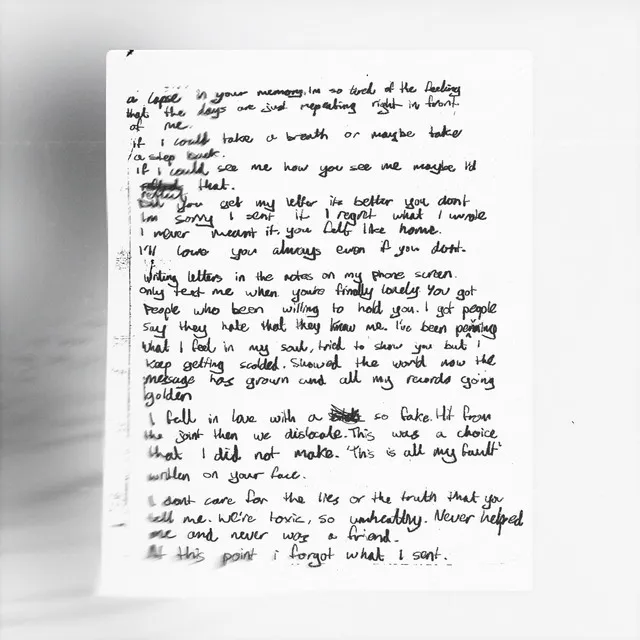 a lapse in your memory. Im so tired of the feeling
that the days are just repeating right in front
of me.
if I could take a breath or maybe take
a step back.
if I could see me how you see me maybe I'd
reflect that.
Did you get my letter its better you dont
Im sorry I sent it I regret what I wrote
I never meant it. you felt like home.
I'll love you always even if you dont.
Writing letters in the notes on my phone screen.
only text me when youre finally lonely You got
People who been willing to hold you. I got people
say they hate that they know me. I've been penning
what I feel in my soul, tried to show you but I
keep getting scolded. Showed the world now the
message has grown and all my records going
golden
I fell in love with a so fake. Hit from
the joint then we dislocate. This was a choice
that I did not make. 'This is all my fault'
written on your face.
I dont care for the lies or the truth that you
tell me. We're toxic, so unhealthy. Never helped
me and never was a friend.
At this point i forgot what I sent.